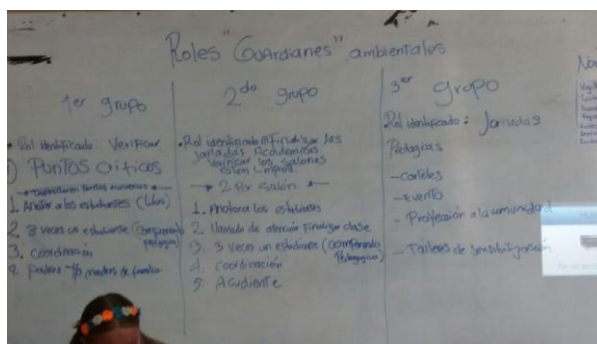 Roles "Guardianes" ambientales
1er grupo
• Rol identificado: Verificar
Puntos criticos
1. Anotar a los estudiantes (Libro)
2. 3 veces un estudiante (comparendo
pedagógico)
3. Coordinación
4. Padres y/o madres de familia
2do grupo
• Rol identificado: Finalizar las
jornadas Académicas
Verificar los salones
estén limpios
2 Por salón
1. Anotar a los estudiantes
2. llamado de atención Finalizar clase
3. 3 veces un estudiante (comparendo
Pedagógico)
4. Coordinación
5. Acudiente
3er grupo
• Rol identificado: Jornadas
Pedagogicas
- Carteles
- Evento
- Proyección a la comunidad
- Talleres de sensibilización